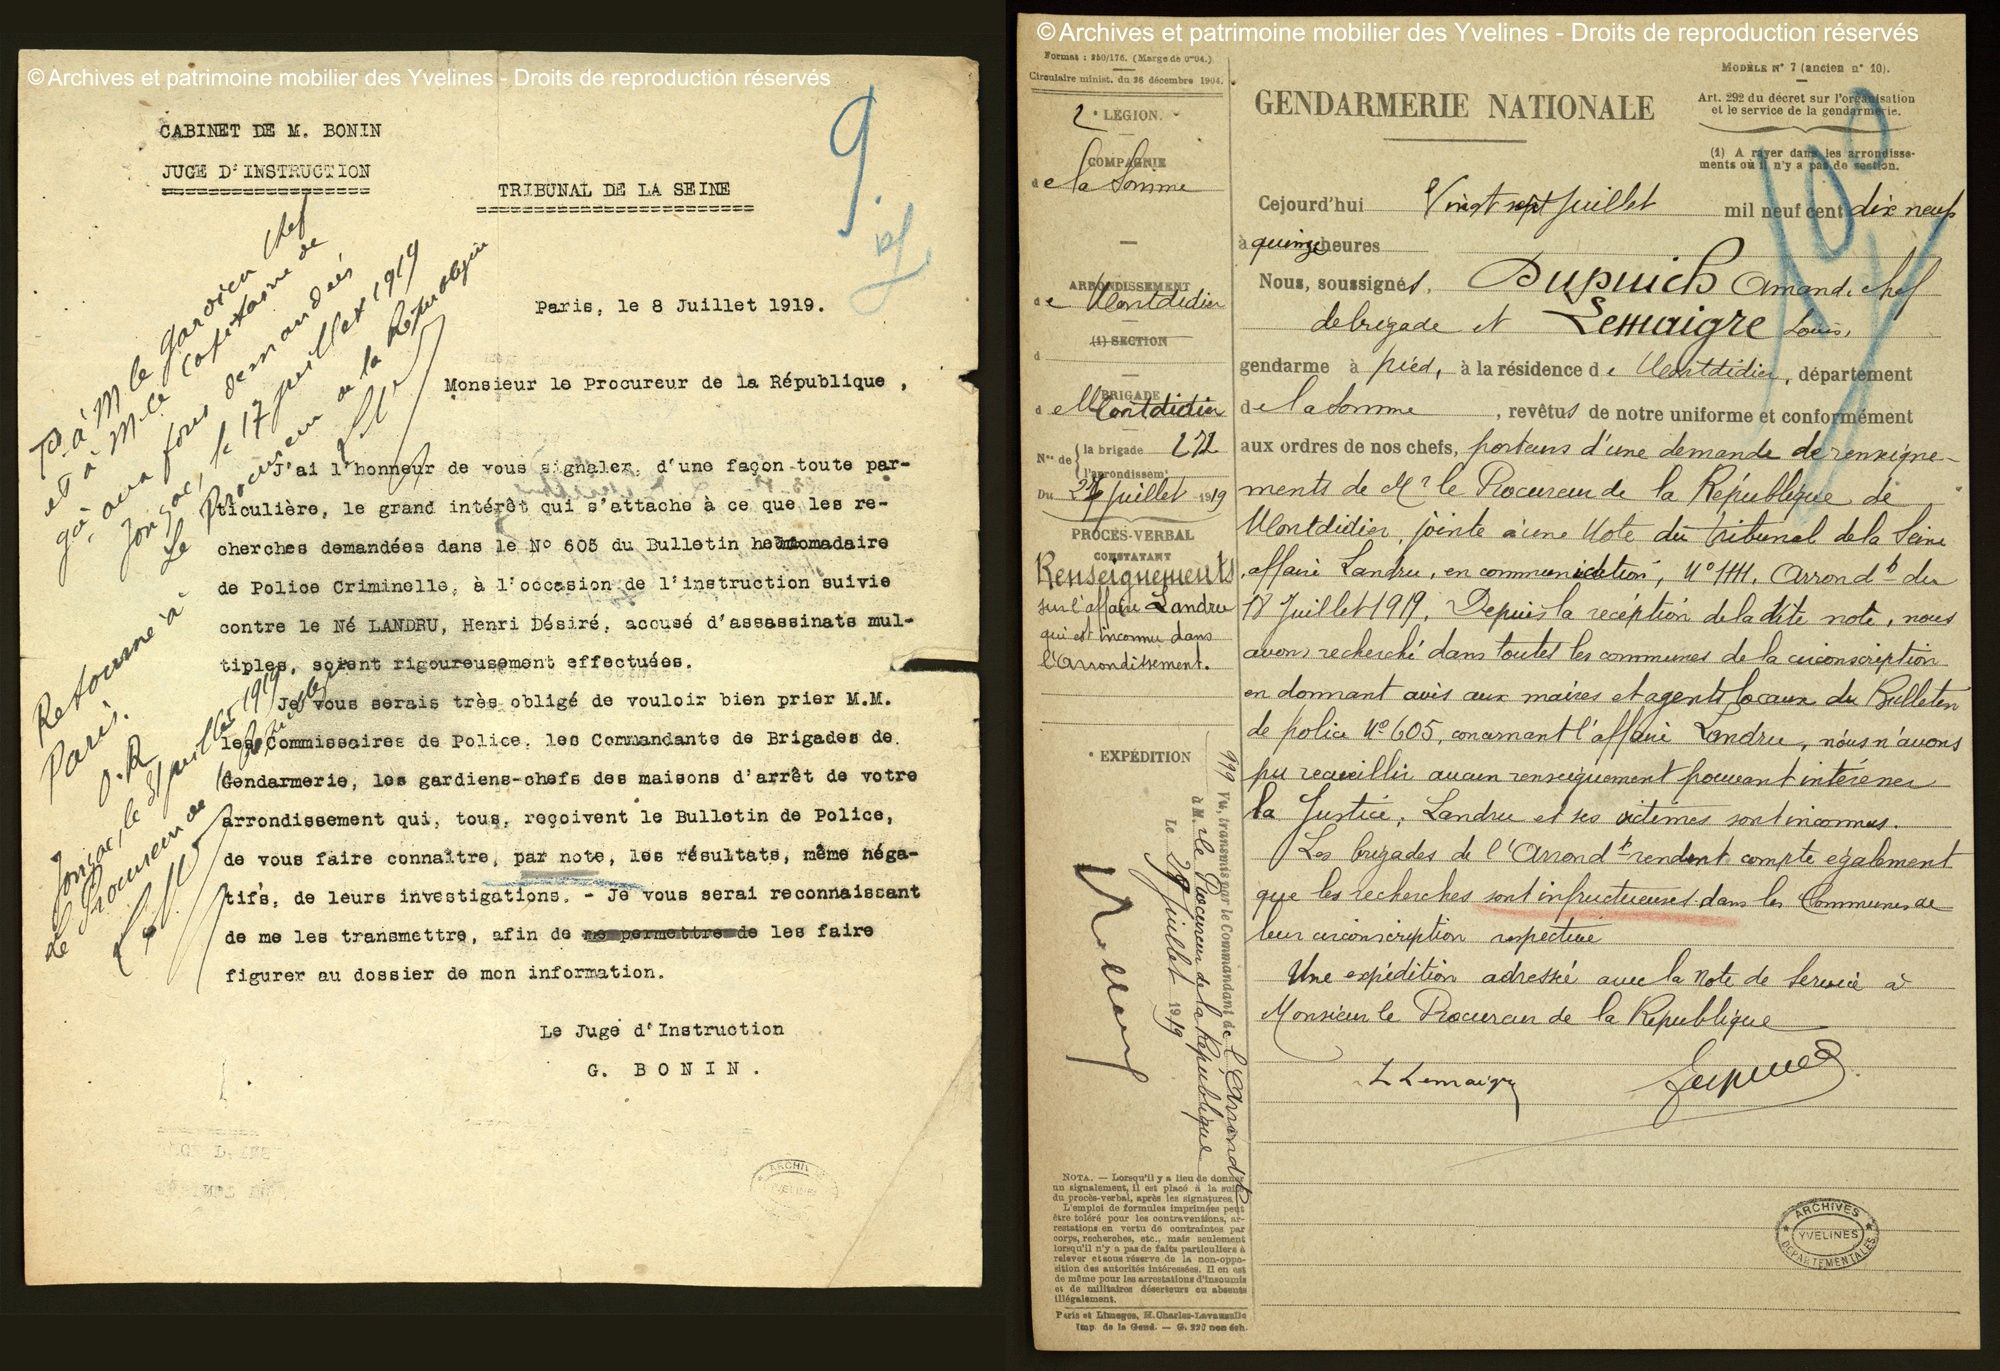 © Archives et patrimoine mobilier des Yvelines - Droits de reproduction réservés
CABINET DE M. BONIN
JUGE D'INSTRUCTION
TRIBUNAL DE LA SEINE
9.
Paris, le 8 Juillet 1919.
Monsieur le Procureur de la République ,
J'ai l'honneur de vous signaler, d'une façon toute par-
ticulière, le grand intérêt qui s'attache à ce que les re-
cherches demandées dans le No 605 du Bulletin hebdomadaire
de Police Criminelle, à l'occasion de l'instruction suivie
contre le Né LANDRU, Henri Désiré, accusé d'assassinats mul-
tiples, soient rigoureusement effectuées.
Je vous serais très obligé de vouloir bien prier M.M.
les Commissaires de Police, les Commandants de Brigades de
Gendarmerie, les gardiens-chefs des maisons d'arrêt de votre
arrondissement qui, tous, reçoivent le Bulletin de Police,
de vous faire connaître, par note, les résultats, même néga-
tifs, de leurs investigations. - Je vous serai reconnaissant
de me les transmettre, afin de me permettre de les faire
figurer au dossier de mon information.
Le Juge d'Instruction
G. BONIN.
à M le gardien chef
et à M. le Capitaine de
demandées
Jonzac, le 17 juillet 1919
Le Procureur de la République
Retourné à
Paris.
Jonzac, le 31 juillet 1919
le Procureur de la République
ARCHIVES
YVELINES
© Archives et patrimoine mobilier des Yvelines - Droits de reproduction réservés
Format : 250/176. (Marge de 0m04.)
Circulaire minist. du 26 décembre 1904.
MODÈLE N° 7 (ancien n° 10).
Art. 292 du décret sur l'organisation
et le service de la gendarmerie.
(1) A rayer dans les arrondisse-
ments où il n'y a pas de section.
GENDARMERIE NATIONALE
2e LÉGION.
COMPAGNIE
de la Somme
ARRONDISSEMENT
de Montdidier
(1) SECTION
d
BRIGADE
de Montdidier
Nos de { la brigade 272
l'arrondissemt
Du 27 juillet 1919
PROCÈS-VERBAL
CONSTATANT
Renseignements
sur l'affaire Landru
qui est inconnu dans
l'Arrondissement.
EXPÉDITION
Cejourd'hui Vingt sept Juillet mil neuf cent dix neuf
à quinze heures
Nous, soussignés, Dupuich Amand, chef
de brigade et Lemaigre Louis,
gendarme à pied, à la résidence de Montdidier, département
de la Somme, revêtus de notre uniforme et conformément
aux ordres de nos chefs, porteurs d'une demande de renseigne-
ments de Mr le Procureur de la République de
Montdidier, jointe à une Note du Tribunal de la Seine
affaire Landru, en communication, No 1111, Arrondt du
18 Juillet 1919. Depuis la recéption de la dite note, nous
avons recherché dans toutes les communes de la circonscription
en donnant avis aux maires et agents locaux du Bulletin
de police No 605, concernant l'affaire Landru, nous n'avons
pu recueillir aucun renseignement pouvant intéresser
la Justice, Landru et ses victimes sont inconnus.
Les brigades de l'Arrondt rendent compte également
que les recherches sont infructueuses dans les Communes de
leur circonscription respective
Une expédition adressée avec la Note de Service à
Monsieur le Procureur de la République
L Lemaigre
999 Vu, transmis par le Commandant de l'Arrondt
à M. le Procureur de la République
Le 29 juillet 1919
NOTA. — Lorsqu'il y a lieu de donner
un signalement, il est placé à la suite
du procès-verbal, après les signatures.
L'emploi de formules imprimées peut
être toléré pour les contraventions, ar-
restations en vertu de contraintes par
corps, recherches, etc., mais seulement
lorsqu'il n'y a pas de faits particuliers à
relever et sous réserve de la non-oppo-
sition des autorités intéressées. Il en est
de même pour les arrestations d'insoumis
et de militaires déserteurs ou absents
illégalement.
Paris et Limoges, H. Charles-Lavauzelle
Imp. de la Gend. — G. 220 non éch.
ARCHIVES
YVELINES
DÉPARTEMENTALES